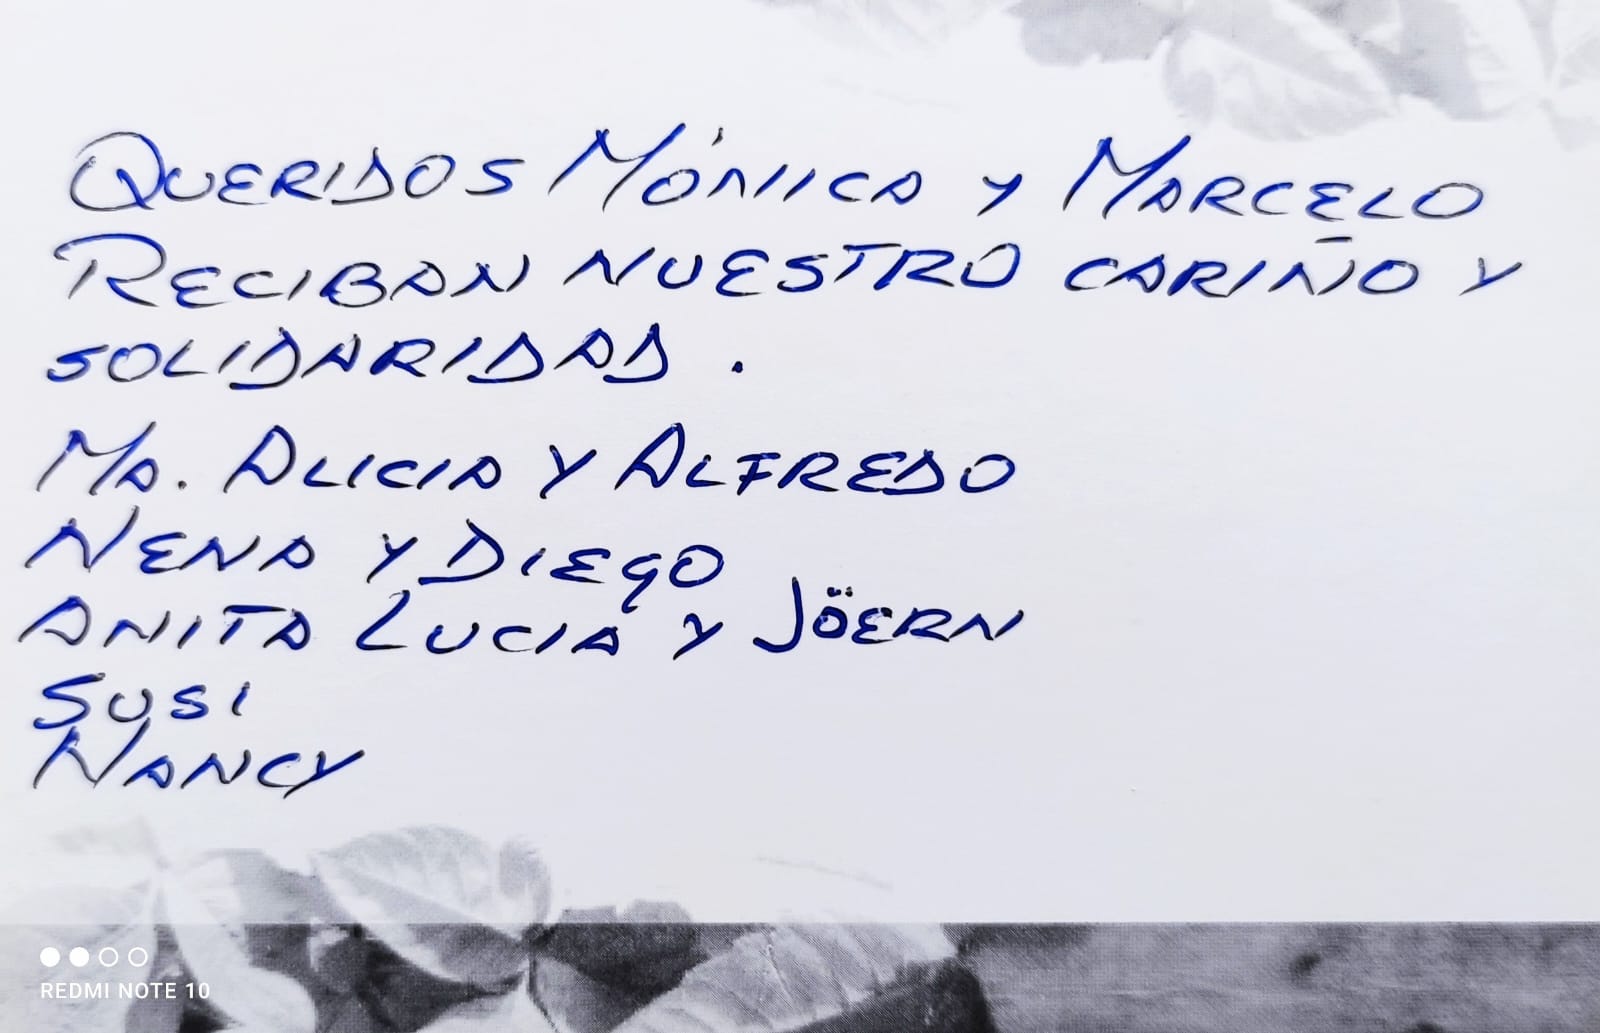 QUERIDOS MÓNIICA Y MARCELO
RECIBAN NUESTRO CARIÑO Y
SOLIDARIDAD.
MA. ALICIA Y ALFREDO
NENA Y DIEGO
ANITA LUCIA Y JÖERN
SUSI
NANCY
REDMI NOTE 10